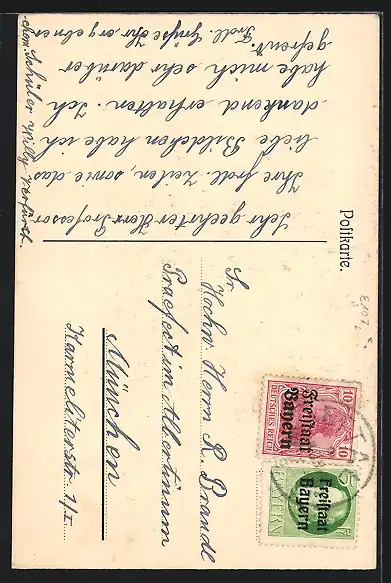 Postkarte.
Sehr geehrter Herr Professor
Ihre frdl. Zeilen, sowie das
liebe Bildchen habe ich
dankend erhalten. Ich
habe mich sehr darüber
gefreut.
Frdl. Grüße Ihr ergebner
Schüler Willy
Sr.
Hochw Herrn R. Brandl
Praefect im Albertinum
München
Karmeliterstr. 1/I
8107
10 10
DEUTSCHES REICH
Freistaat
Bayern
5
BAYERN
Freistaat
Bayern